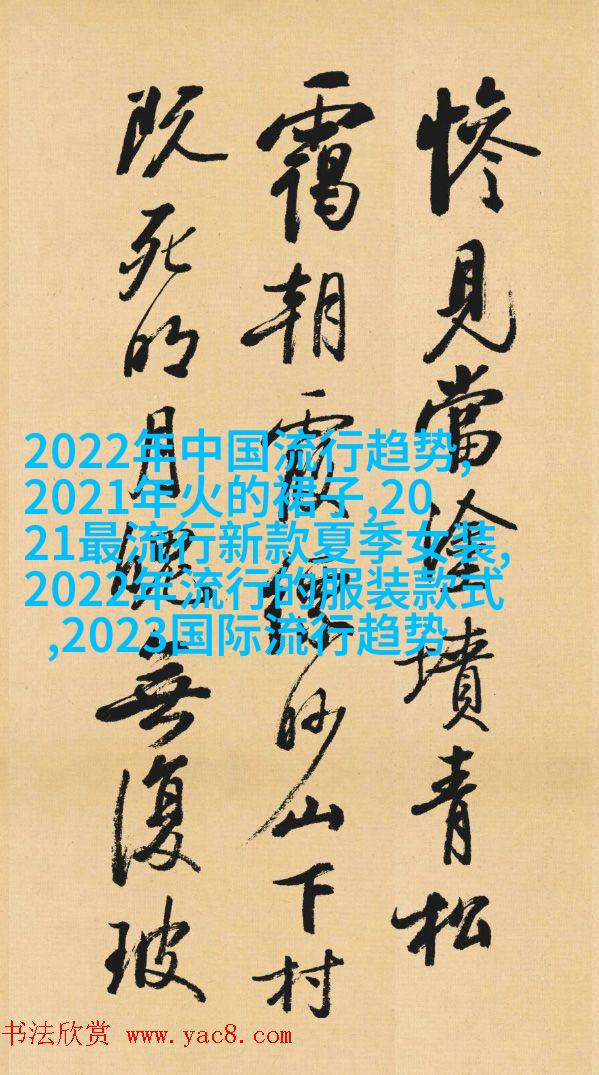 慘見當塗墳青松
靄朝霞縹眇山下村
既死明月魄無復玻
2022年中国流行趋势,
2021年火的裙子,20
21最流行新款夏季女装,
2022年流行的服装款式
,2023国际流行趋势
书法欣赏 www.yac8.com